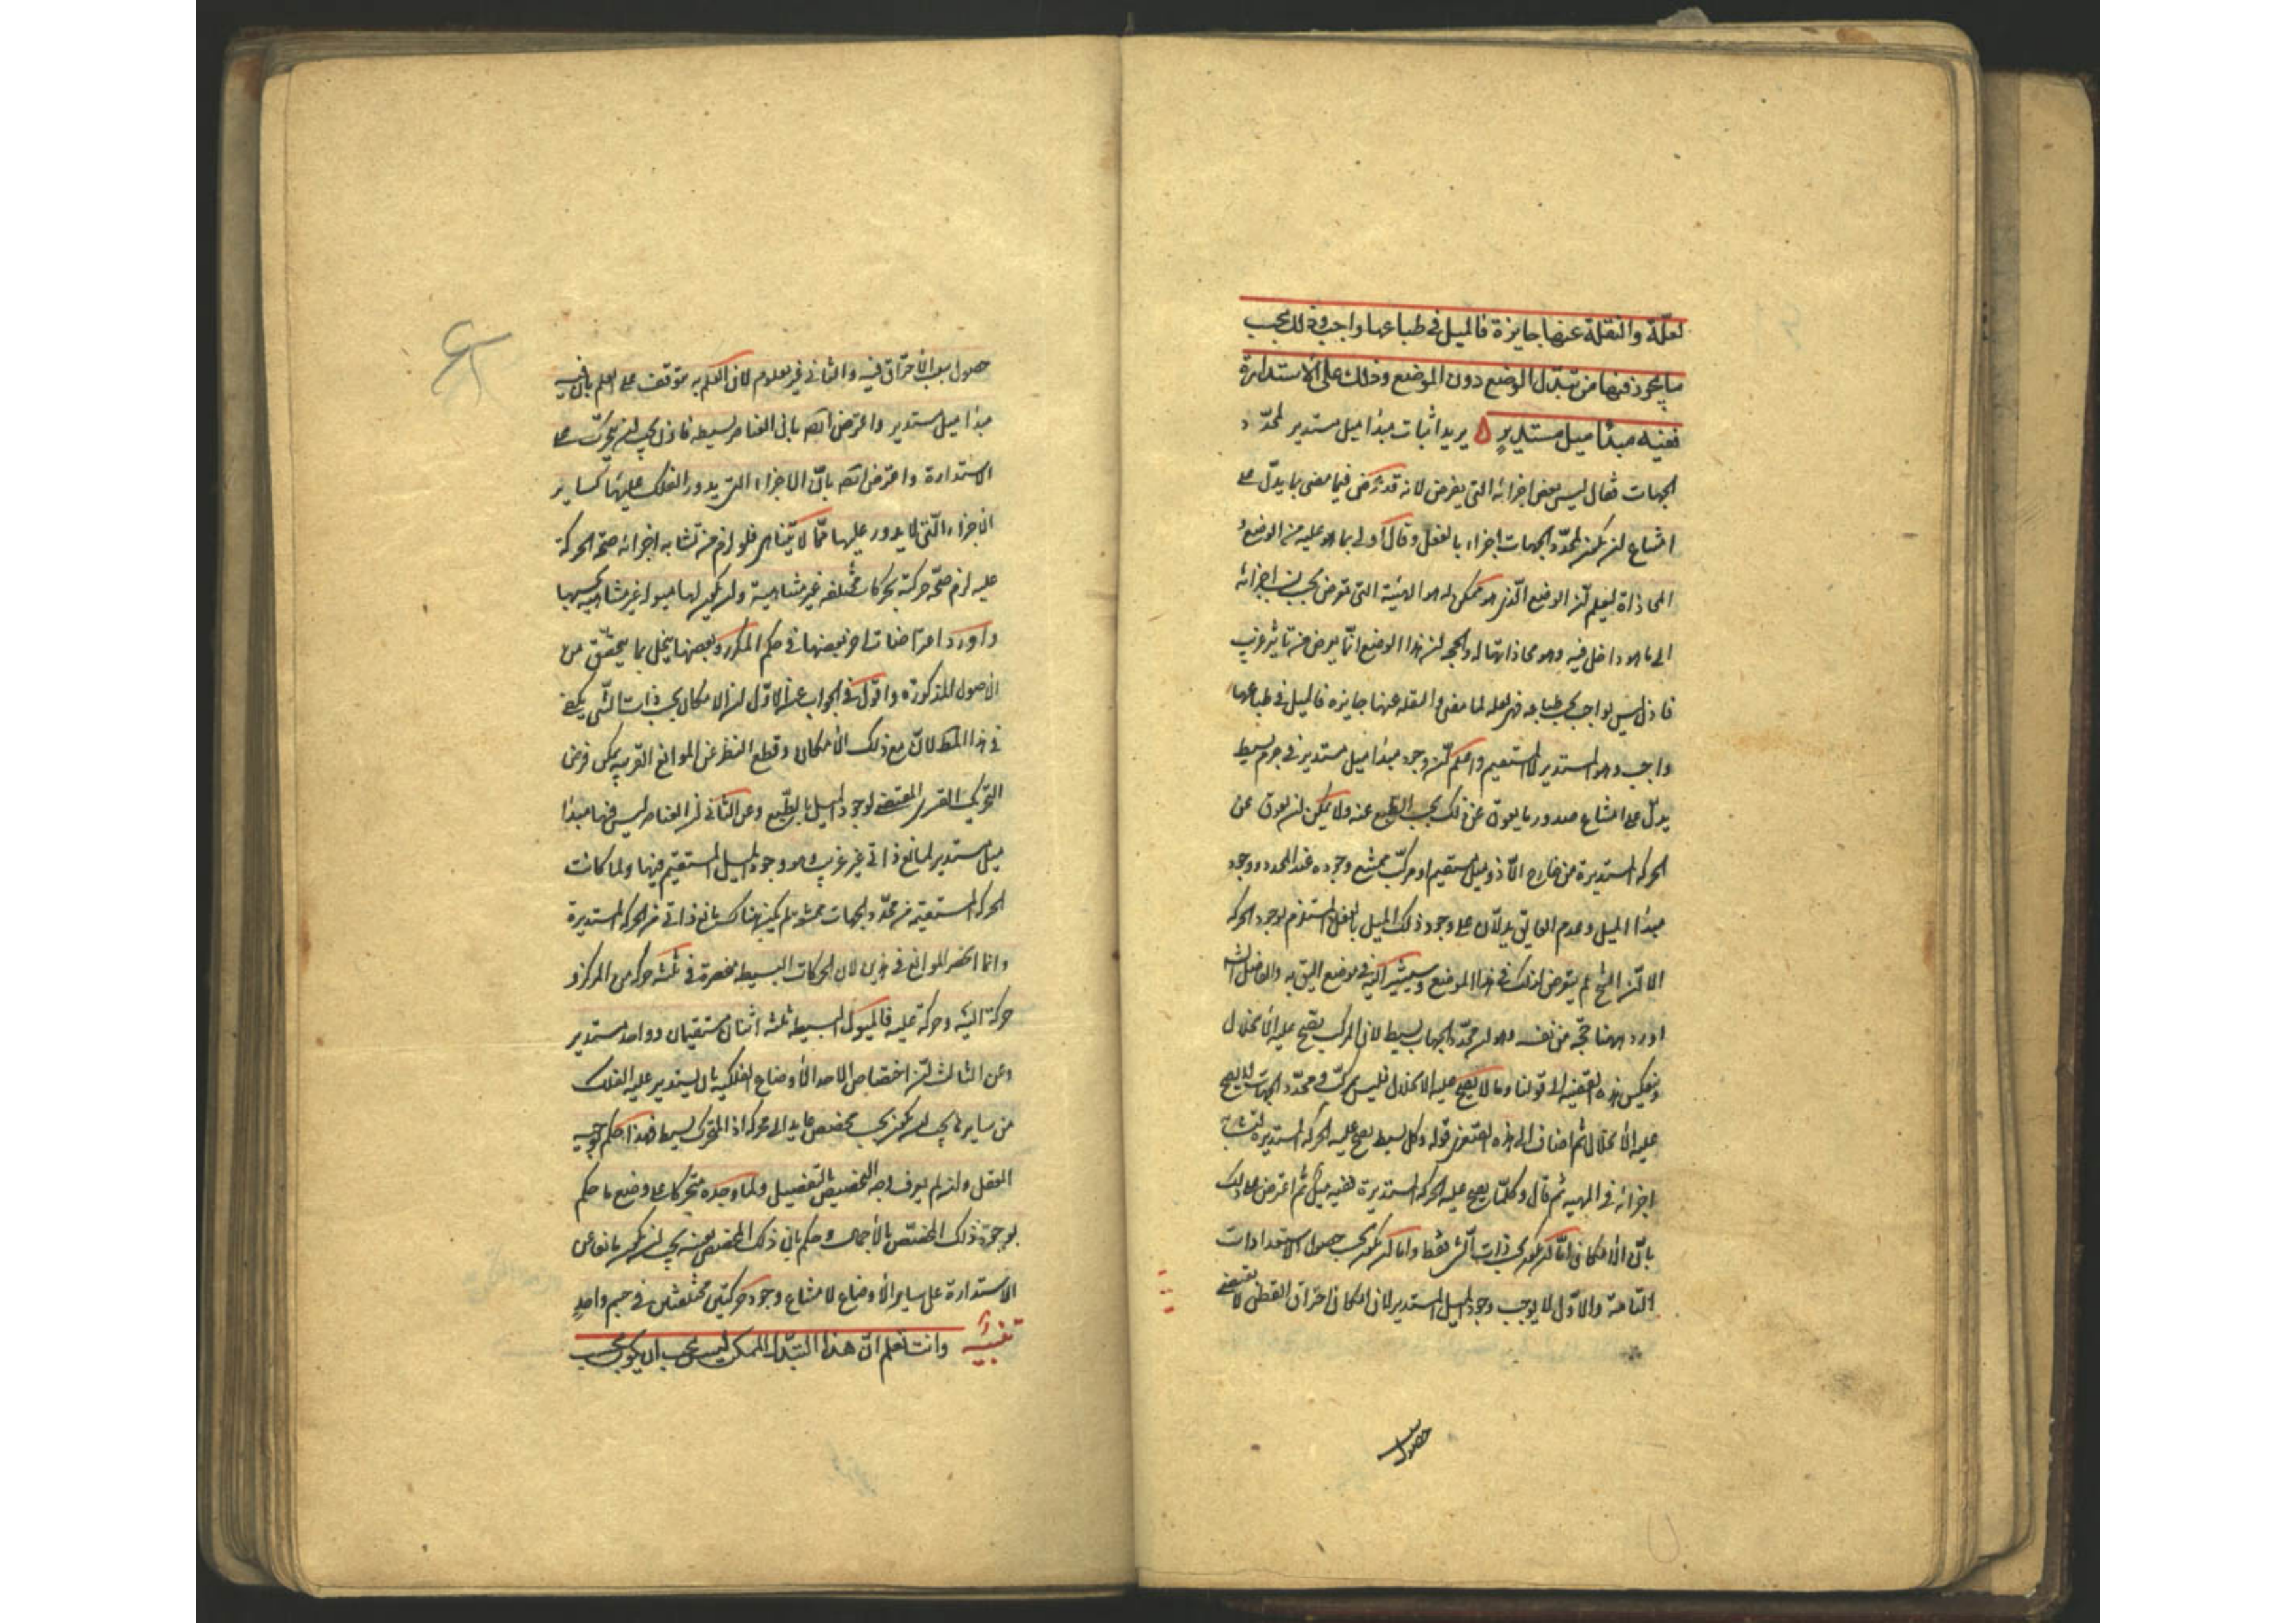 لعلّة والنقلة عنها جايزة فالميل في طباعها واجب وذلك بحسب
ما يجوز فيها من تبدّل الوضع دون الموضع وذلك على الاستدارة
ففيه مبدأ ميل مستدير يريد اثبات مبدأ ميل مستدير لمحدّد
الجهات فقال ليس بعض اجزائه التي يفرض لانه قد فيما مضى ما يدلّ على
امتناع ان يكون لمحدّد الجهات اجزاء بالفعل وقال أولى بما هو عليه من الوضع و
المحاذاة ليعلم ان الوضع الذي هو ممكن له هو الهيئة التي تعرض بحسب اجزائه
الى ما هو داخل فيه وهو محاذاتها له والحجة ان هذا الوضع انّما يعرض من تاثير غريب
فاذن ليس بواجب بحسب طباعه فهي لعله لما مضى والنقله عنها جايزه فالميل في طباعها
واجب وهو المستدير لا المستقيم واعلم ان وجود مبدأ ميل مستدير في جرم بسيط
يدلّ على امتناع صدور ما يعوق عن ذلك بحسب الطبع عنه ولا يمكن ان يعوق عن
الحركه المستديرة من خارج الّا ذو ميل مستقيم او مركب يمتنع وجوده عند المحدد ووجود
مبدأ الميل وعدم العايق يدلّان على وجود ذلك الميل بالفعل المستلزم لوجود الحركه
الا انّ الشيخ لم يتعرض لذلك في هذا الموضع وسيشير اليه في موضع اليق به والفاضل الشـ
اورد ههنا حجّة من نفسه وهو ان محدّد الجهات بسيط لان المركب يصح عليه الانحلال
وينعكس هذه القضيه الى قولنا وما لا يصح عليه الانحلال فليس بمركب ومحدّد الجهات لا يصح
عليه الانحلال ثم اضاف الى هذه القضية قوله وكل بسيط يصح عليه الحركه المستديره لتشابه
اجزائه في المهيه ثم قال وكلّما يصح عليه الحركه المستديرة ففيه ميل ثم اعترض على ذلك
بانّ الامكان امّا ان يكون بحسب ذات الشي فقط واما ان يكون بحسب حصول الاستعدادات
التامّة والاوّل لا يوجب وجود الميل المستدير لان امكان احتراق القطن لا يقتضي
حصول
حصول سبب الاحتراق فيه والثاني غير معلوم لان العلم به متوقف على العلم بان فيه
مبدأ ميل مستدير واعترض ايضا بان العناصر بسيطه فاذن يجب ان يتحرّك على
الاستدارة واعترض ايضا بانّ الاجزاء التي يدور الفلك عليها كساير
الاجزاء الّتي لا يدور عليها ممّا لا يتناهى فلو لزم من تشابه اجزائه صحّة الحركة
عليه لزم صحّة حركته بحركات مختلفه غير متناهية وان يكون لها ميول غير متناهيه بحسبها
واورد اعتراضات اخر بعضها في حكم المكرر وبعضها ينحل بما يتحقّق من
الاصول المذكوره واقول في الجواب عن الاوّل ان الامكان بحسب ذات الشي يكفي
في هذا المطلب لانّ مع ذلك الامكان وقطع النظر عن الموانع الغريبه يمكن فرض
التحريك القسري المقتضي لوجود الميل بالطبع وعن الثاني ان العناصر ليس فيها مبدأ
ميل مستدير لمانع ذاتي غير غريب وهو وجود الميل المستقيم فيها ولما كانت
الحركه المستقيمه من محدّد الجهات ممتنعة لم يكن هناك مانع ذاتي من الحركه المستديرة
وانما انحصر الموانع في هذين لان الحركات البسيطه منحصرة في ثلثة حركه من المركز و
حركة اليه وحركة عليه فالميول البسيطه ثلثه اثنان مستقيمان وواحد مستدير
وعن الثالث ان اختصاص احد الاوضاع الفلكيه بان يستدير عليه الفلك
من ساير ما يجب ان يكون بحسب مخصص عايد الى محركه اذ المتحرك بسيط فهذا حكم يوجبه
العقل وان لم يعرف وجه التخصيص بالتفصيل ولما وجده متحركا على وضع ما حكم
بوجود ذلك المخصّص بالاجمال وحكم بان ذلك المخصص بعينه يجب ان يكون مانعا عن
الاستدارة على ساير الاوضاع لامتناع وجود حركتين مختلفتين في جسم واحد
تنبيه وانت تعلم انّ هذا التبدّل الممكن ليس يجب ان يكون بحسب